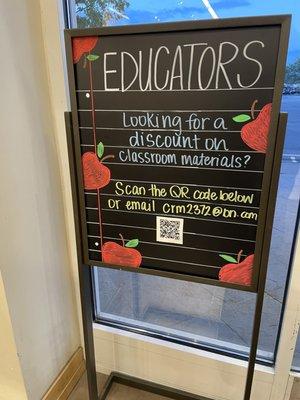 EDUCATORS
Looking for a
discount on
classroom materials?
Scan the QR code below
or email crm2372@bn.com